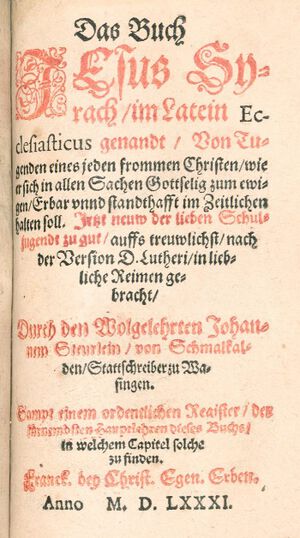 Das Buch
JEsus Sy-
rach / im Latein Ec-
clesiasticus genandt / Von Tu-
genden eines jeden frommen Christen / wie
er sich in allen Sachen Gottselig zum ewi-
gen / Erbar vnnd standthafft im Zeitlichen
halten soll. Jetzt neuw der lieben Schul-
jugendt zu gut / auffs treuwlichst / nach
der Version D. Lutheri / in lieb-
liche Reimen ge-
bracht /
Durch den Wolgelehrten Johan-
nem Steurlein / von Schmalkal-
den / Stattschreiber zu Wa-
singen.
Sampt einem ordentlichen Register / der
fürnembsten Hauptlehren dieses Buchs /
in welchem Capitel solche
zu finden.
Franck. bey Christ. Egen. Erben.
Anno M. D. LXXXI.